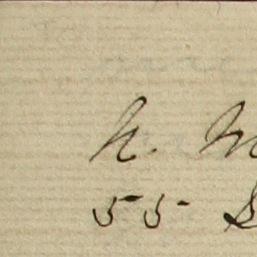 N. M
55 S